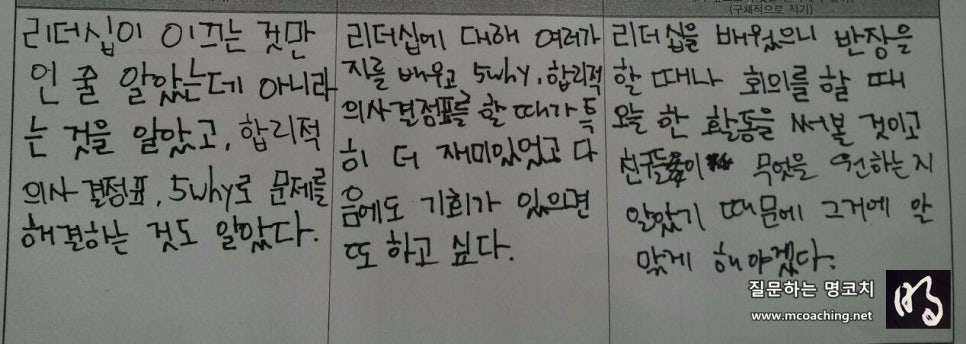 (구체적으로 적기)
리더십이 이끄는 것만
인 줄 알았는데 아니라
는 것을 알았고, 합리적
의사결정표, 5why로 문제를
해결하는 것도 알았다.
리더십에 대해 여러가
지를 배우고 5why, 합리적
의사결정표를 할 때가 특
히 더 재미있었고 다
음에도 기회가 있으면
또 하고 싶다.
리더십을 배웠으니 반장을
할 때나 회의를 할 때
오늘 한 활동을 써볼 것이고
친구들이 무엇을 원하는지
알았기 때문에 그거에 알
맞게 해야겠다.
질문하는 명코치
www.mcoaching.net